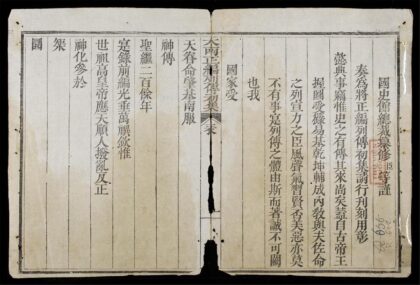 國史館總裁纂修臣等謹
奏為將正編列傳初集請行刊刻用彰
懿典事竊惟史之有傳其來尚矣蓋自古帝王
握圖受籙易基乾坤輔成內教與夫佐命
之列宣力之臣風聲氣習賢否美惡亦莫
不有事寔列傳之體由斯而著誠不可闕
也我
國家受
大南正編列傳初集
卷
天眷命肇基南服
神傳
聖繼二百餘年
寔錄前編光垂萬禩欽惟
世祖高皇帝應天順人撥亂反正
神化參於
架
圖